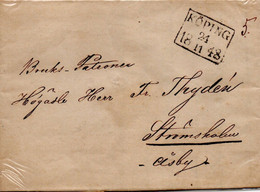 KÖPING
24
18 11 48
5.
Bruks-Patronen
Högädle Herr Fr. Thydén
Strömsholm
Åsby